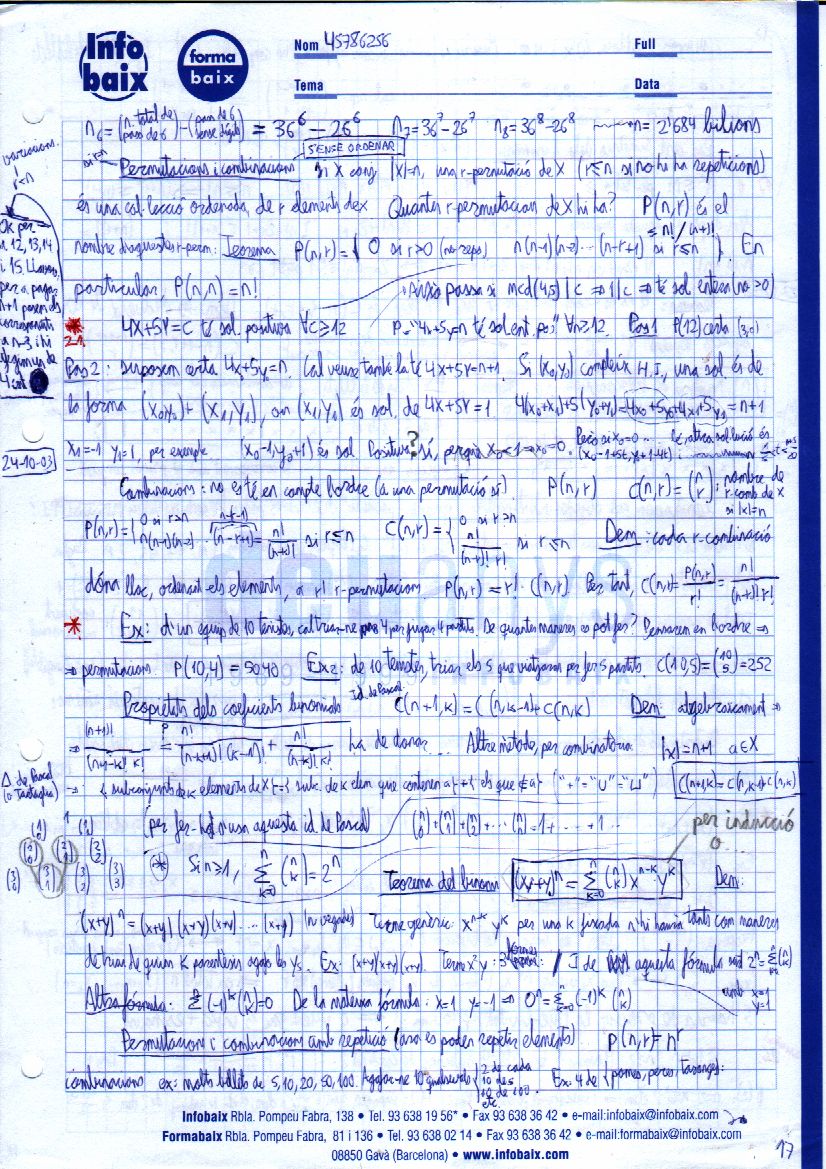 Info baix
forma baix
Nom 45786256
Full
Tema
Data
n₆ = (n. total de pass de 6) − (pass de 6 sense dígits) = 36⁶ − 26⁶ n₇ = 36⁷ − 26⁷ n₈ = 36⁸ − 26⁸ n = 2'684 bilions
variacions si r<n
Permutacions i combinacions
SENSE ORDENAR
si X conj |X|=n, una r-permutació de X (r≤n si no hi ha repeticions)
és una col·lecció ordenada, de r elements de X Quantes r-permutacions de X hi ha? P(n,r) és el
nombre d'aquestes r-perm: Teorema P(n,r) = { 0 si r>n (no reps) n(n-1)(n-2)...(n-r+1) si r≤n }. En
particular, P(n,n) = n! Això passa si mcd(4,5) | c ⇒ 1 | c ⇒ té sol entera (no >0)
* 21 4X+5Y=C té sol. positiva ∀c≥12 P="4x+5y=n té sol ent. pos" ∀n≥12. Pas 1 P(12) certa (3,0)
Ok per n. 12, 13, 14 i 15.
per a n+1 posem els corresponents a n-3 i hi afegim un de 4 cent
Pas 2: suposem certa 4x₀+5y₀=n. Cal veure també la té 4X+5Y=n+1. Si (x₀,y₀) compleix H.I., una sol és de
la forma (x₀,y₀)+(x₁,y₁), on (x₁,y₁) és sol. de 4X+5Y=1. 4(x₀+x₁)+5(y₀+y₁)=4x₀+5y₀+4x₁+5y₁=n+1
24-10-03
x₁=-1 y₁=1, per exemple (x₀-1, y₀+1) és sol Positiva? sí, perquè x₀<1⇒x₀=0. Però si x₀=0 ... té altra sol·lució és
(x₀-1+5t, y₀+1-4t) i
Combinacions: no es té en compte l'ordre (a una permutació sí). P(n,r) C(n,r)=(n r): nombre de r-comb de X si |X|=n
P(n,r)={ 0 si r>n n(n-1)(n-2)...(n-r+1) = n!/(n-r)! si r≤n C(n,r)={ 0 si r>n n!/(n-r)! r! si r≤n Dem: cada r-combinació
dóna lloc, ordenant-els elements, a r! r-permutacions P(n,r) = r! · C(n,r) Per tant, C(n,r) = P(n,r)/r! = n!/(n-r)! r!
* Ex: d'un equip de 10 tenistes, cal triar-ne 4 per jugar 4 partits. De quantes maneres es pot fer? Pensarem en l'ordre ⇒
⇒ permutacions. P(10,4) = 5040 Ex 2: de 10 tenistes, triar els 5 que viatjaran per fer 5 partits. C(10,5)=(10 5)=252
Propietats dels coeficients binomials Id. de Pascal C(n+1,k) = C(n,k-1)+C(n,k) Dem: algebraicament ⇒
⇒ (n+1)!/(n+1-k)! k! = n!/(n-k+1)! (k-1)! + n!/(n-k)! k! ha de donar... Altre mètode, per combinatòria |X|=n+1 a∈X
Δ de Pascal (o Tartaglia)
⇒ {subconjunts de k elements de X}={subc. de k elem que contenen a}+{els que ∌ a} ("+"="∪"="⊔") C(n+1,k)=C(n,k-1)+C(n,k)
(per fer-ho s'usa aquesta id. de Pascal) (n 0)+(n 1)+(n 2)+...(n n)=1+...+1
per inducció o...
(1 0) (1 1)
(2 0) (2 1) (2 2)
(3 0) (3 1) (3 2) (3 3)
* Si n≥1, Σ k=0 n (n k) = 2ⁿ Teorema del binomi (x+y)ⁿ = Σ k=0 n (n k) xⁿ⁻ᵏ yᵏ Dem:
(x+y)ⁿ = (x+y)(x+y)(x+y)....(x+y) (n vegades) Terme genèric: xⁿ⁻ᵏ yᵏ per una k fixada n'hi haurà tants com maneres
de triar de quins k parèntesis agafo les ys. Ex: (x+y)(x+y)(x+y). Terme x²y: 3 I de aquesta fórmula surt 2ⁿ=Σ(n k)
amb x=1 y=1
Altra fórmula: Σ(-1)ᵏ(n k)=0 De la mateixa fórmula: x=1 y=-1 ⇒ 0ⁿ=Σ k=0 n (-1)ᵏ (n k)
Permutacions i combinacions amb repetició (ara es poden repetir elements). P(n,r)=nʳ
combinacions ex: molts bitllets de 5, 10, 20, 50, 100. Agafar-ne 10 qualsevols { 2 de cada 10 de 5 10 de 100 etc. Ex: 4 de {pomes, peres, taronges}:
Infobaix Rbla. Pompeu Fabra, 138 • Tel. 93 638 19 56* • Fax 93 638 36 42 • e-mail:infobaix@infobaix.com
Formabaix Rbla. Pompeu Fabra, 81 i 136 • Tel. 93 638 02 14 • Fax 93 638 36 42 • e-mail:formabaix@infobaix.com
08850 Gavà (Barcelona) • www.infobaix.com
17